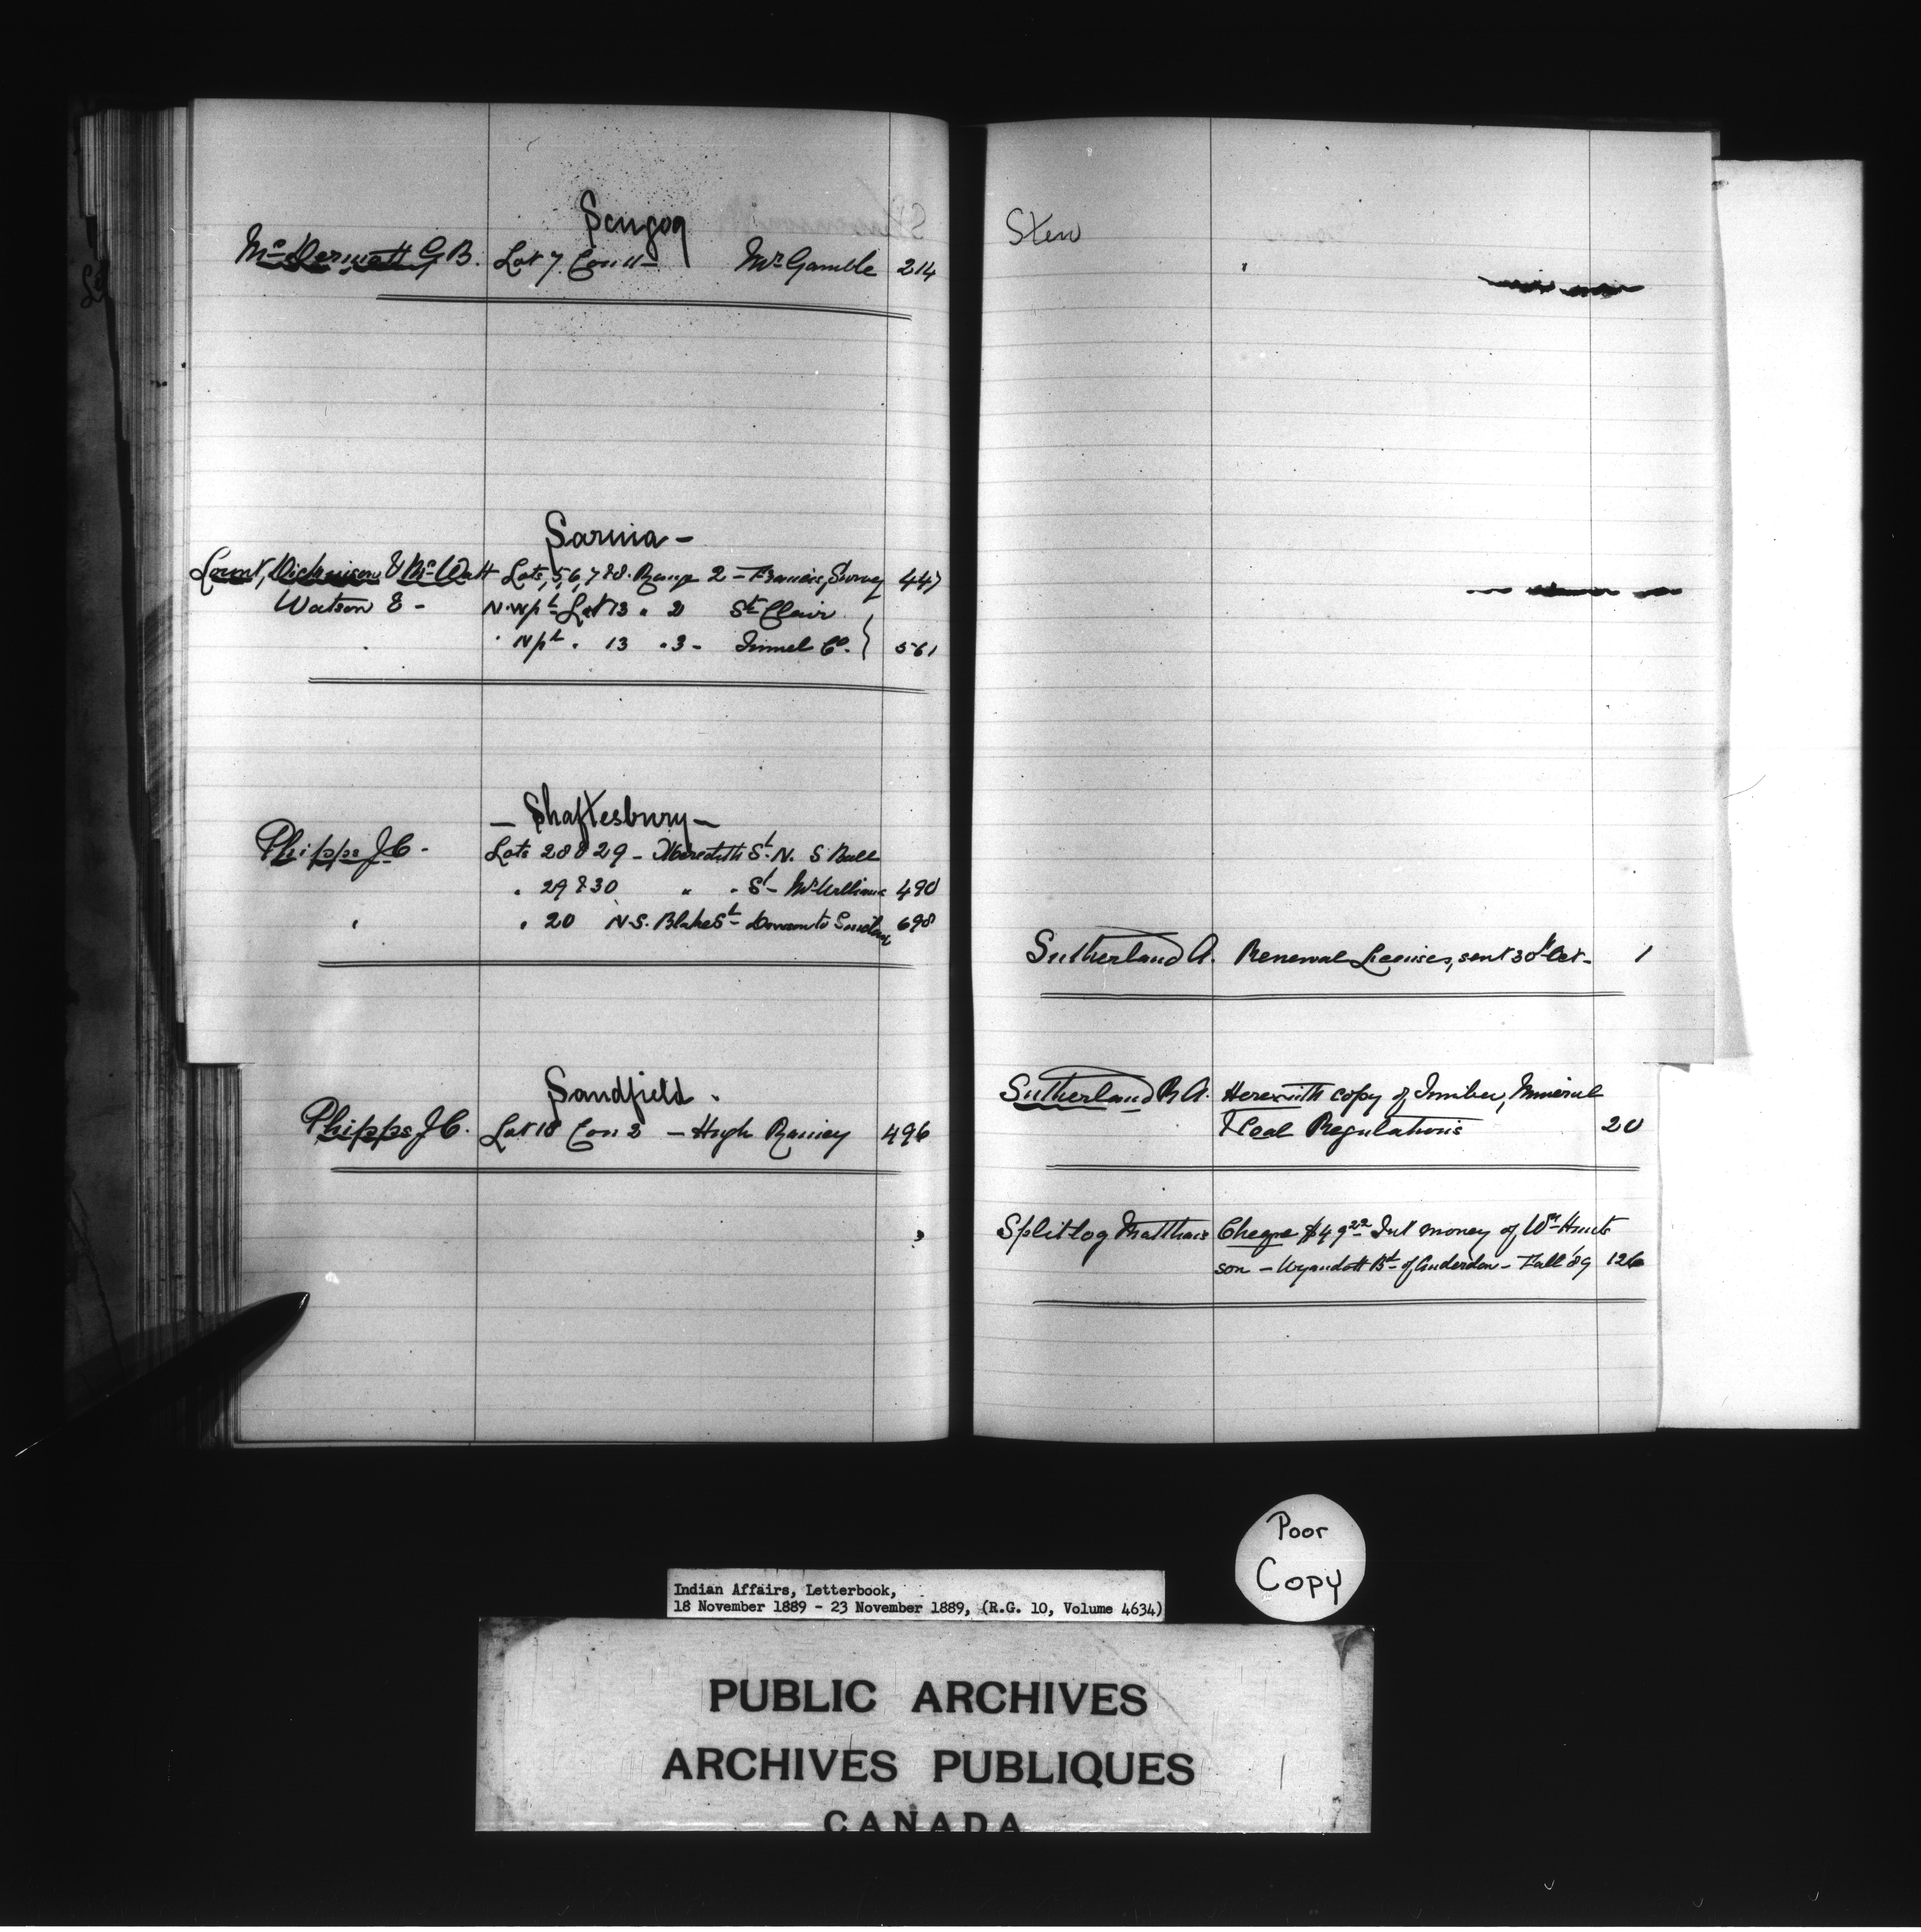 Scugog
McDermott G B. Lot 7 Con 11 - Mr Gamble 214
Sarnia -
Lount, Dickinson & McWatt Lots, 5, 6, 7 & 8. Range 2 - Francis, Survey 447
Watson E - N. W pt Lot 13 " 2 St Clair
" N pt " 13 " 3 - Tunnel Co. } 561
- Shaftesbury -
Phipps J C. Lots 28 & 29 - Meredith St. N. S Ball
" 29 & 30 " " St - McWilliams 490
" " 20 N. S. Blake St -
698
Sandfield .
Phipps J C. Lot 18 Con 2 - Hugh 496
Stew
Sutherland A. Renewal Licenses, sent 30th Oct - 1
Sutherland R A. Herewith copy of Timber, Mineral
& Coal Regulations 20
Splitlog Matthais Cheque $49 22 Int money of Wm Hunt
son - Wyandott Bd - of Anderdon - Fall '89 126
Poor
Copy
Indian Affairs, Letterbook,
18 November 1889 - 23 November 1889, (R.G. 10, Volume 4634)
PUBLIC ARCHIVES
ARCHIVES PUBLIQUES
CANADA